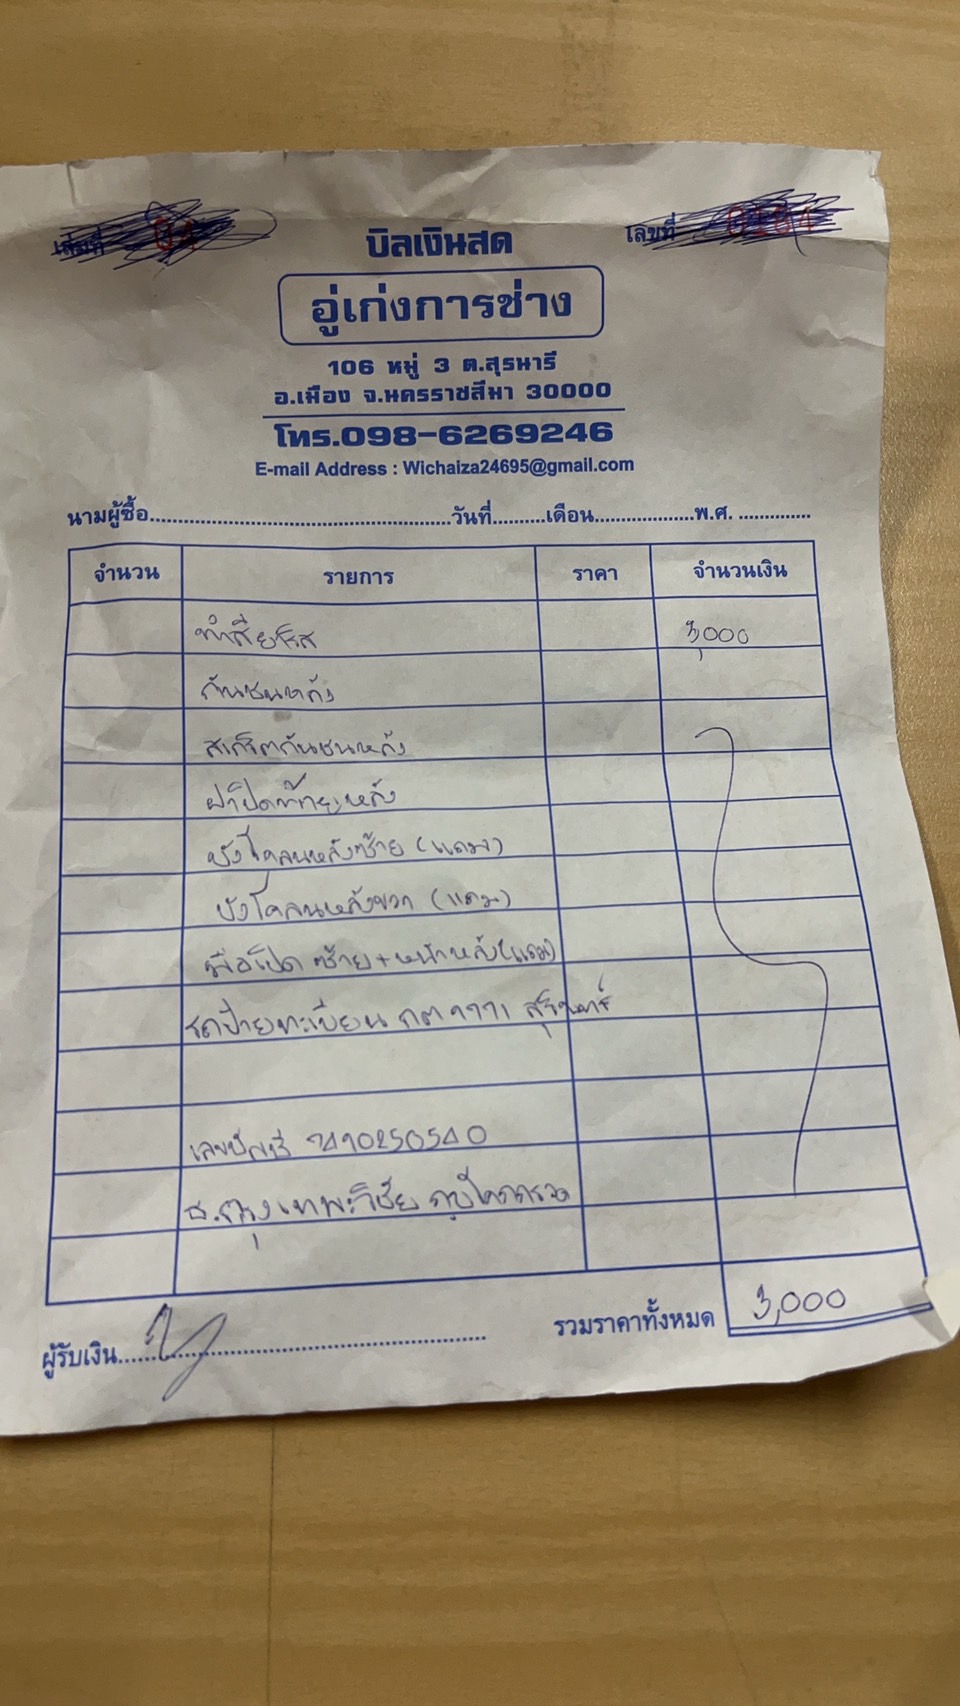 เล่มที่
เลขที่
บิลเงินสด
อู่เก่งการช่าง
106 หมู่ 3 ต.สุรนารี
อ.เมือง จ.นครราชสีมา 30000
โทร.098-6269246
E-mail Address : Wichaiza24695@gmail.com
นามผู้ซื้อ วันที่ เดือน พ.ศ.
จำนวน รายการ ราคา จำนวนเงิน
ทำสี 3,000
กันชนหลัง
สเกิ๊ตกันชนหลัง
ฝาปิดท้ายหลัง
บังโคลนหลังซ้าย (แถม)
บังโคลนหลังขวา (แถม)
มือเปิด ซ้าย + หน้าหลัง (แถม)
รถป้ายทะเบียน สุรินทร์
เลขบัญชี
ธ.กรุงเทพ วิชัย
ผู้รับเงิน รวมราคาทั้งหมด 3,000